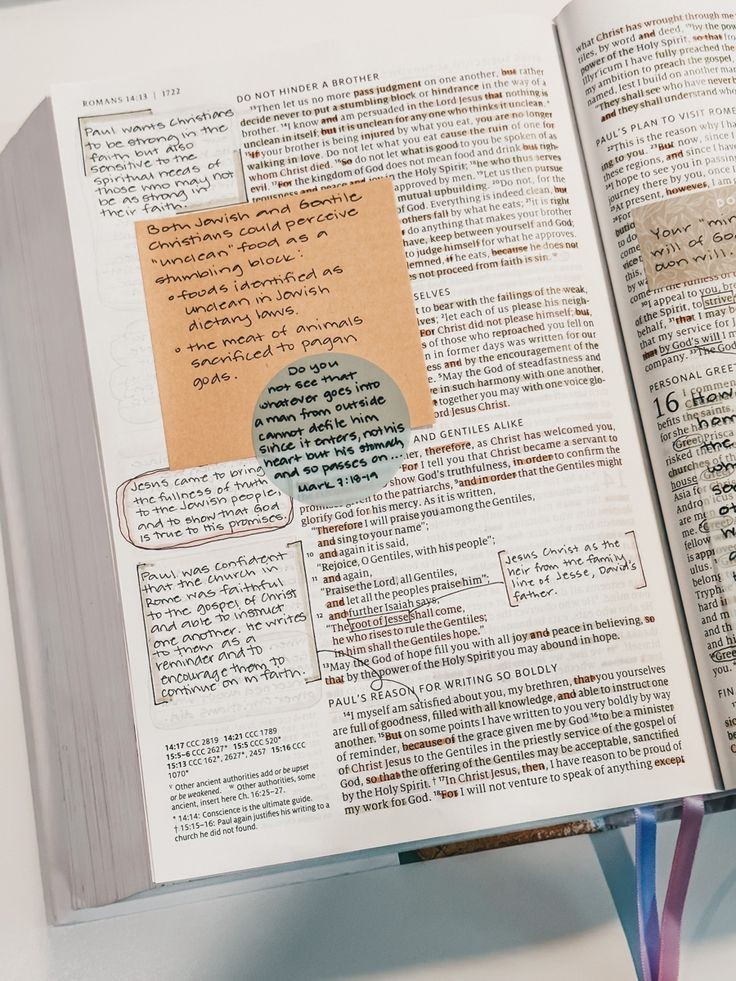 ROMANS 14:13 | 1722
Paul wants Christians
to be strong in the
faith but also
sensitive to the
spiritual needs of
those who may not
be as strong in
their faith.
Both Jewish and Gentile
Christians could perceive
"unclean" food as a
stumbling block:
• foods identified as
unclean in Jewish
dietary laws.
• the meat of animals
sacrificed to pagan
gods.
Do you
not see that
whatever goes into
a man from outside
cannot defile him
since it enters, not his
heart but his stomach
and so passes on...
Mark 7:18-19
Jesus came to bring
the fullness of truth
to the Jewish people,
and to show that God
is true to His promises.
Paul was confident
that the church in
Rome was faithful
to the gospel of Christ
and able to instruct
one another. He writes
to them as a
reminder and to
encourage them to
continue on in faith.
14:17 CCC 2819 14:21 CCC 1789
15:5–6 CCC 2627* 15:5 CCC 520*
15:13 CCC 162*, 2627*, 2457 15:16 CCC
1070*
v Other ancient authorities add or be upset
or be weakened. w Other authorities, some
ancient, insert here Ch. 16:25–27.
* 14:14: Conscience is the ultimate guide.
† 15:15–16: Paul again justifies his writing to a
church he did not found.
DO NOT HINDER A BROTHER
13Then let us no more pass judgment on one another, but rather
decide never to put a stumbling block or hindrance in the way of a
brother. 14I know and am persuaded in the Lord Jesus that nothing is
unclean in itself; but it is unclean for any one who thinks it unclean.*
15If your brother is being injured by what you eat, you are no longer
walking in love. Do not let what you eat cause the ruin of one for
whom Christ died. 16So do not let what is good to you be spoken of as
evil. 17For the kingdom of God does not mean food and drink but righ-
teousness and peace and joy in the Holy Spirit; 18he who thus serves
approved by men. 19Let us then pursue
mutual upbuilding. 20Do not, for the
of God. Everything is indeed clean, but
others fall by what he eats; 21it is right
do anything that makes your brother
have, keep between yourself and God;
to judge himself for what he approves.
demned, if he eats, because he does not
es not proceed from faith is sin.
SELVES
to bear with the failings of the weak,
lves; 2let each of us please his neigh-
For Christ did not please himself; but,
of those who reproached you fell on
in former days was written for our
ess and by the encouragement of the
5May the God of steadfastness and
e in such harmony with one another,
together you may with one voice glo-
ord Jesus Christ.
AND GENTILES ALIKE
her, therefore, as Christ has welcomed you,
For I tell you that Christ became a servant to
show God's truthfulness, in order to confirm the
promises given to the patriarchs, 9and in order that the Gentiles might
glorify God for his mercy. As it is written,
"Therefore I will praise you among the Gentiles,
and sing to your name";
10 and again it is said,
"Rejoice, O Gentiles, with his people";
11 and again,
"Praise the Lord, all Gentiles,
and let all the peoples praise him";
12 and further Isaiah says,
"The root of Jesse shall come,
he who rises to rule the Gentiles;
in him shall the Gentiles hope."
13May the God of hope fill you with all joy and peace in believing, so
that by the power of the Holy Spirit you may abound in hope.
Jesus Christ as the
heir from the family
line of Jesse, David's
father.
PAUL'S REASON FOR WRITING SO BOLDLY
14I myself am satisfied about you, my brethren, that you yourselves
are full of goodness, filled with all knowledge, and able to instruct one
another. 15But on some points I have written to you very boldly by way
of reminder, because of the grace given me by God 16to be a minister
of Christ Jesus to the Gentiles in the priestly service of the gospel of
God, so that the offering of the Gentiles may be acceptable, sanctified
by the Holy Spirit.† 17In Christ Jesus, then, I have reason to be proud of
my work for God. 18For I will not venture to speak of anything except
what Christ has wrought through me
tiles, by word and deed, 19by the
power of the Holy Spirit, so that
llyricum I have fully preached the
my ambition to preach the gospel,
named, lest I build on another man
"They shall see who have never b
and they shall understand who
PAUL'S PLAN TO VISIT ROME
22This is the reason why I ha
ing to you. 23But now, since I
these regions, and since I have
24I hope to see you in passing
journey there by you, once I
25At present, however, I am
DO
Your "min
will of Go
own will.
30I appeal to you, bre
of the Spirit, to strive
behalf, 31that I may b
that my service for J
that by God's will I m
company. 33The God
PERSONAL GREET
16 I commen
befits the saints,
for she ha
Greet Prisca